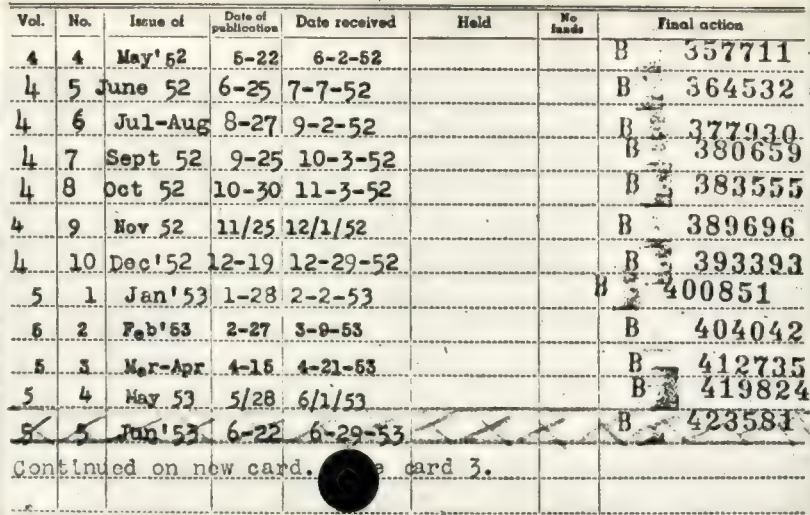 Vol. No. Issue of Date of publication Date received Held No funds Final action
4 4 May'52 5-22 6-2-52 B 357711
4 5 June 52 6-25 7-7-52 B 364532
4 6 Jul-Aug 8-27 9-2-52 B 377930
4 7 Sept 52 9-25 10-3-52 B 380659
4 8 Oct 52 10-30 11-3-52 B 383555
4 9 Nov 52 11/25 12/1/52 B 389696
4 10 Dec'52 12-19 12-29-52 B 393393
5 1 Jan'53 1-28 2-2-53 B 400851
5 2 Feb'53 2-27 3-9-53 B 404042
5 3 Mar-Apr 4-15 4-21-53 B 412735
5 4 May 53 5/28 6/1/53 B 419824
5 5 Jun'53 6-22 6-29-53 B 423581
Continued on new card. card 3.